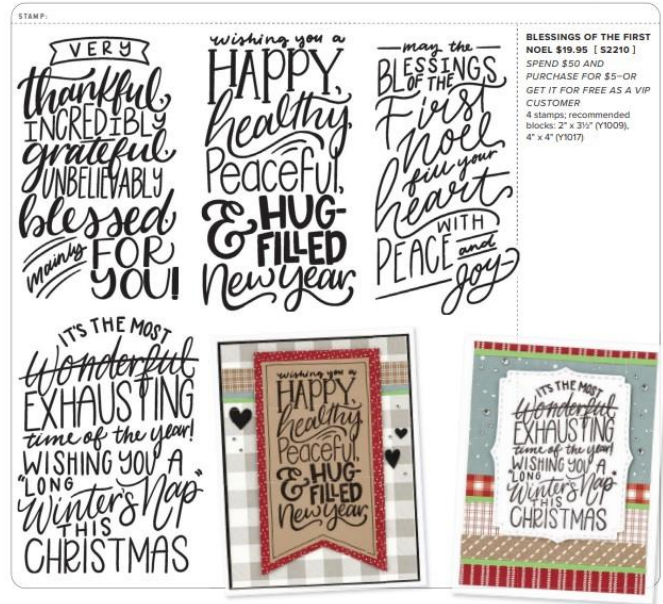 STAMP:
VERY
thankful,
INCREDIBLY
grateful
UNBELIEVABLY
blessed
mainly FOR
YOU!
wishing you a
HAPPY,
healthy,
Peaceful,
& HUG-
FILLED
New Year
may the
BLESSINGS
OF THE
First
Noel
fill your
heart
WITH
PEACE and
joy
BLESSINGS OF THE FIRST
NOEL $19.95 [ S2210 ]
SPEND $50 AND
PURCHASE FOR $5—OR
GET IT FOR FREE AS A VIP
CUSTOMER
4 stamps; recommended
blocks: 2" x 3½" (Y1009),
4" x 4" (Y1017)
IT'S THE MOST
Wonderful
EXHAUSTING
time of the year!
WISHING YOU A
"LONG
Winter's Nap"
THIS
CHRISTMAS
wishing you a
HAPPY,
healthy,
Peaceful,
& HUG-
FILLED
New Year
IT'S THE MOST
Wonderful
EXHAUSTING
time of the year!
WISHING YOU A
"LONG
Winter's Nap"
THIS
CHRISTMAS